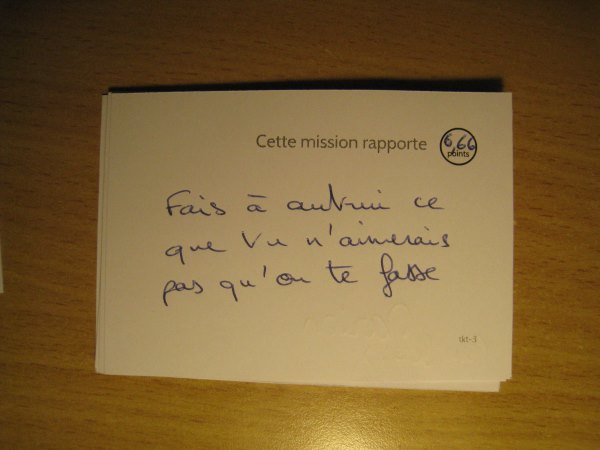 Cette mission rapporte 6,66 points
Fais à autrui ce
que tu n'aimerais
pas qu'on te fasse
tkt-3